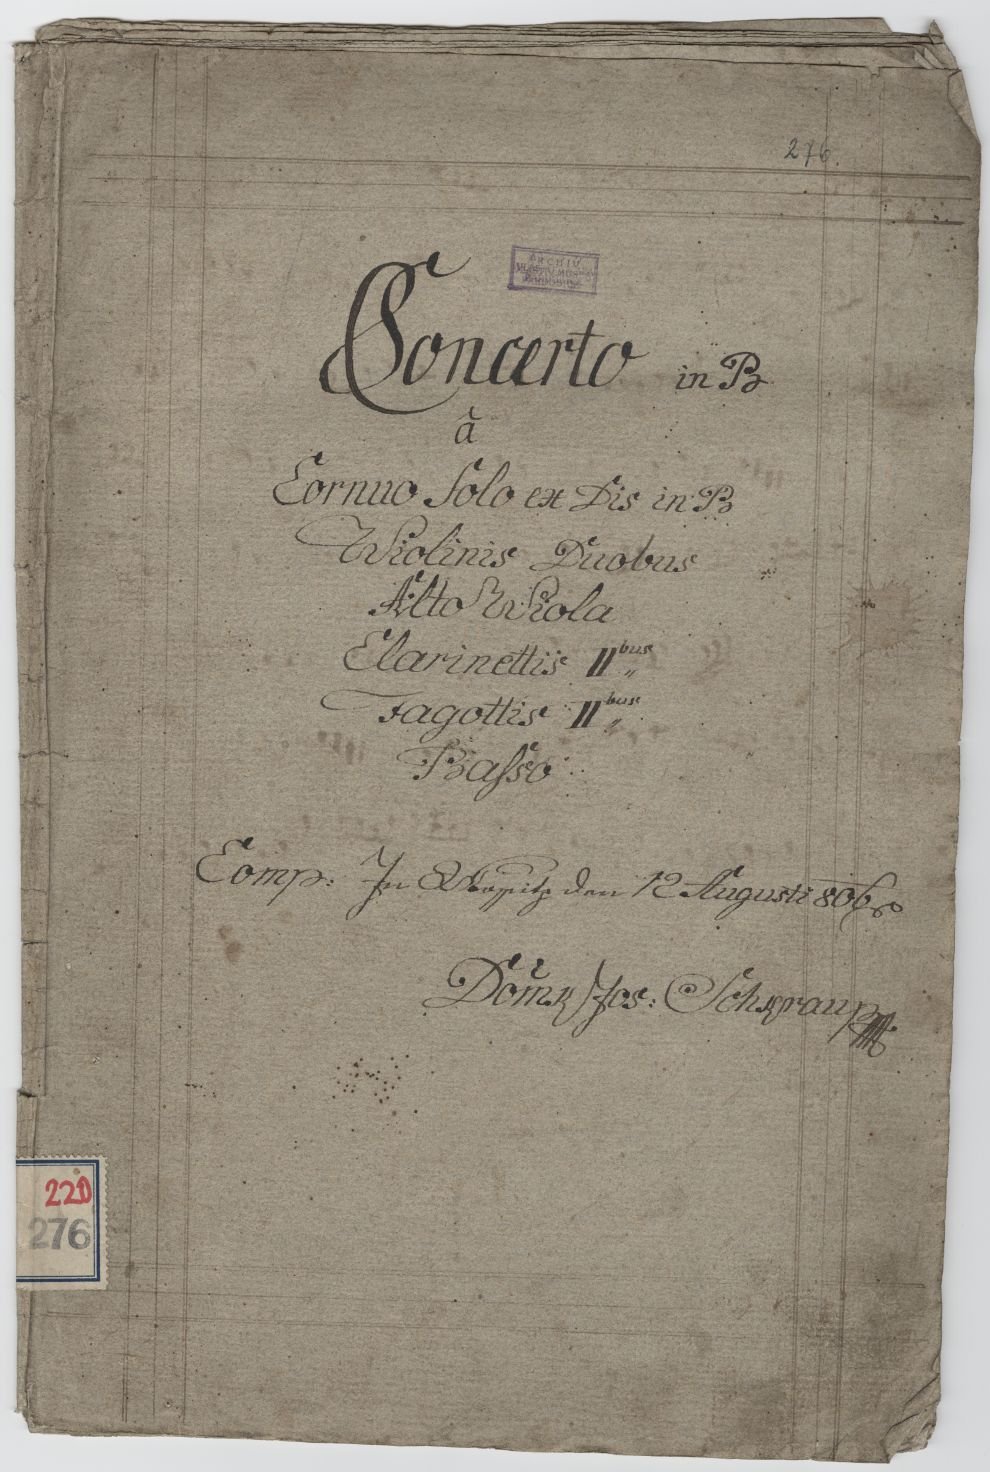 276.
ARCHIV
Concerto in B
à
Cornuo Solo ex Dis in B
Violinis Duobus
Alto Viola
Clarinettis II bus
Fagottis II bus
Basso
Comp: In den 12 Augusti 806
Jos: Schkraup
220
276